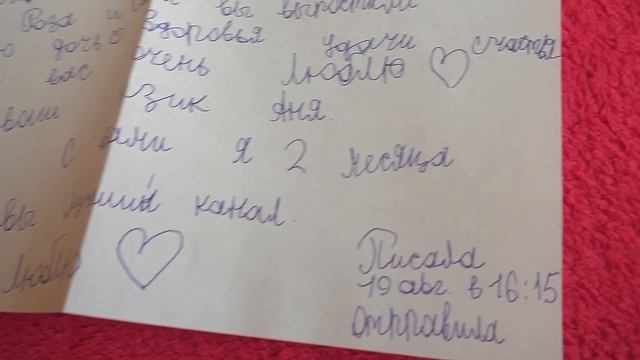 Роза и вы вырастили
дочь здоровья удачи счастья
вас очень люблю
ваш Зик Аня.
С вами я 2 месяца
вы лучший канал.
Люблю
Писала
19 авг. в 16:15
Отправила